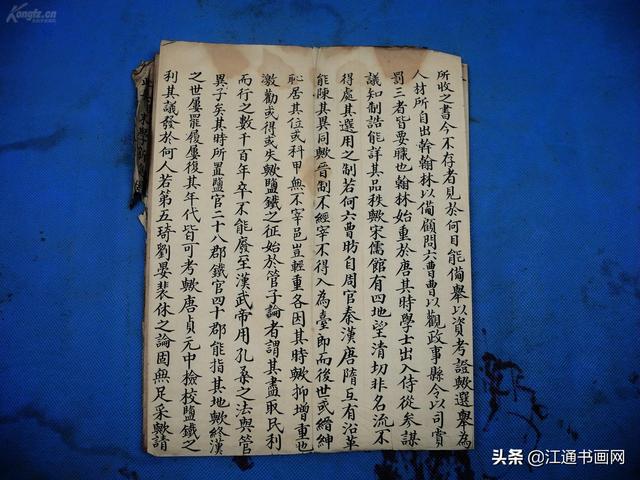 所收之書今不存者見於何目能備舉以資考證歟選舉為
人材所自出幹翰林以備顧問六曹曹以觀政事縣令以司賞
罰三者皆要職也翰林始重於唐其時學士出入侍從參謀
議知制誥能詳其品秩歟宋儒館有四地望清切非名流不
得處其選用之制若何六曹昉自周官秦漢唐隋互有沿革
能陳其異同歟晉制不經宰不得入為臺郎而後世或縉紳
恥居其位或科甲無不宰邑豈輕重各因其時歟抑增重也
激勸或得或失歟鹽鐵之征始於管子論者謂其盡取民利
而行之數千百年卒不能廢至漢武帝用孔桑之法與管
異子矣其時所置鹽官二十八郡鐵官四十郡能指其地歟終漢
之世屢罷履屢復其年代皆可考歟唐貞元中檢校鹽鐵之
利其議發於何人若第五琦劉晏裴休之論固無足采歟請
Kongfz.cn
头条@江通书画网